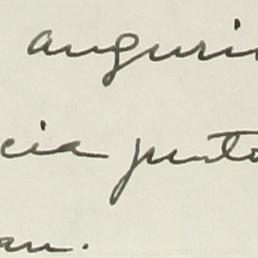 auguri
cia punto
an.